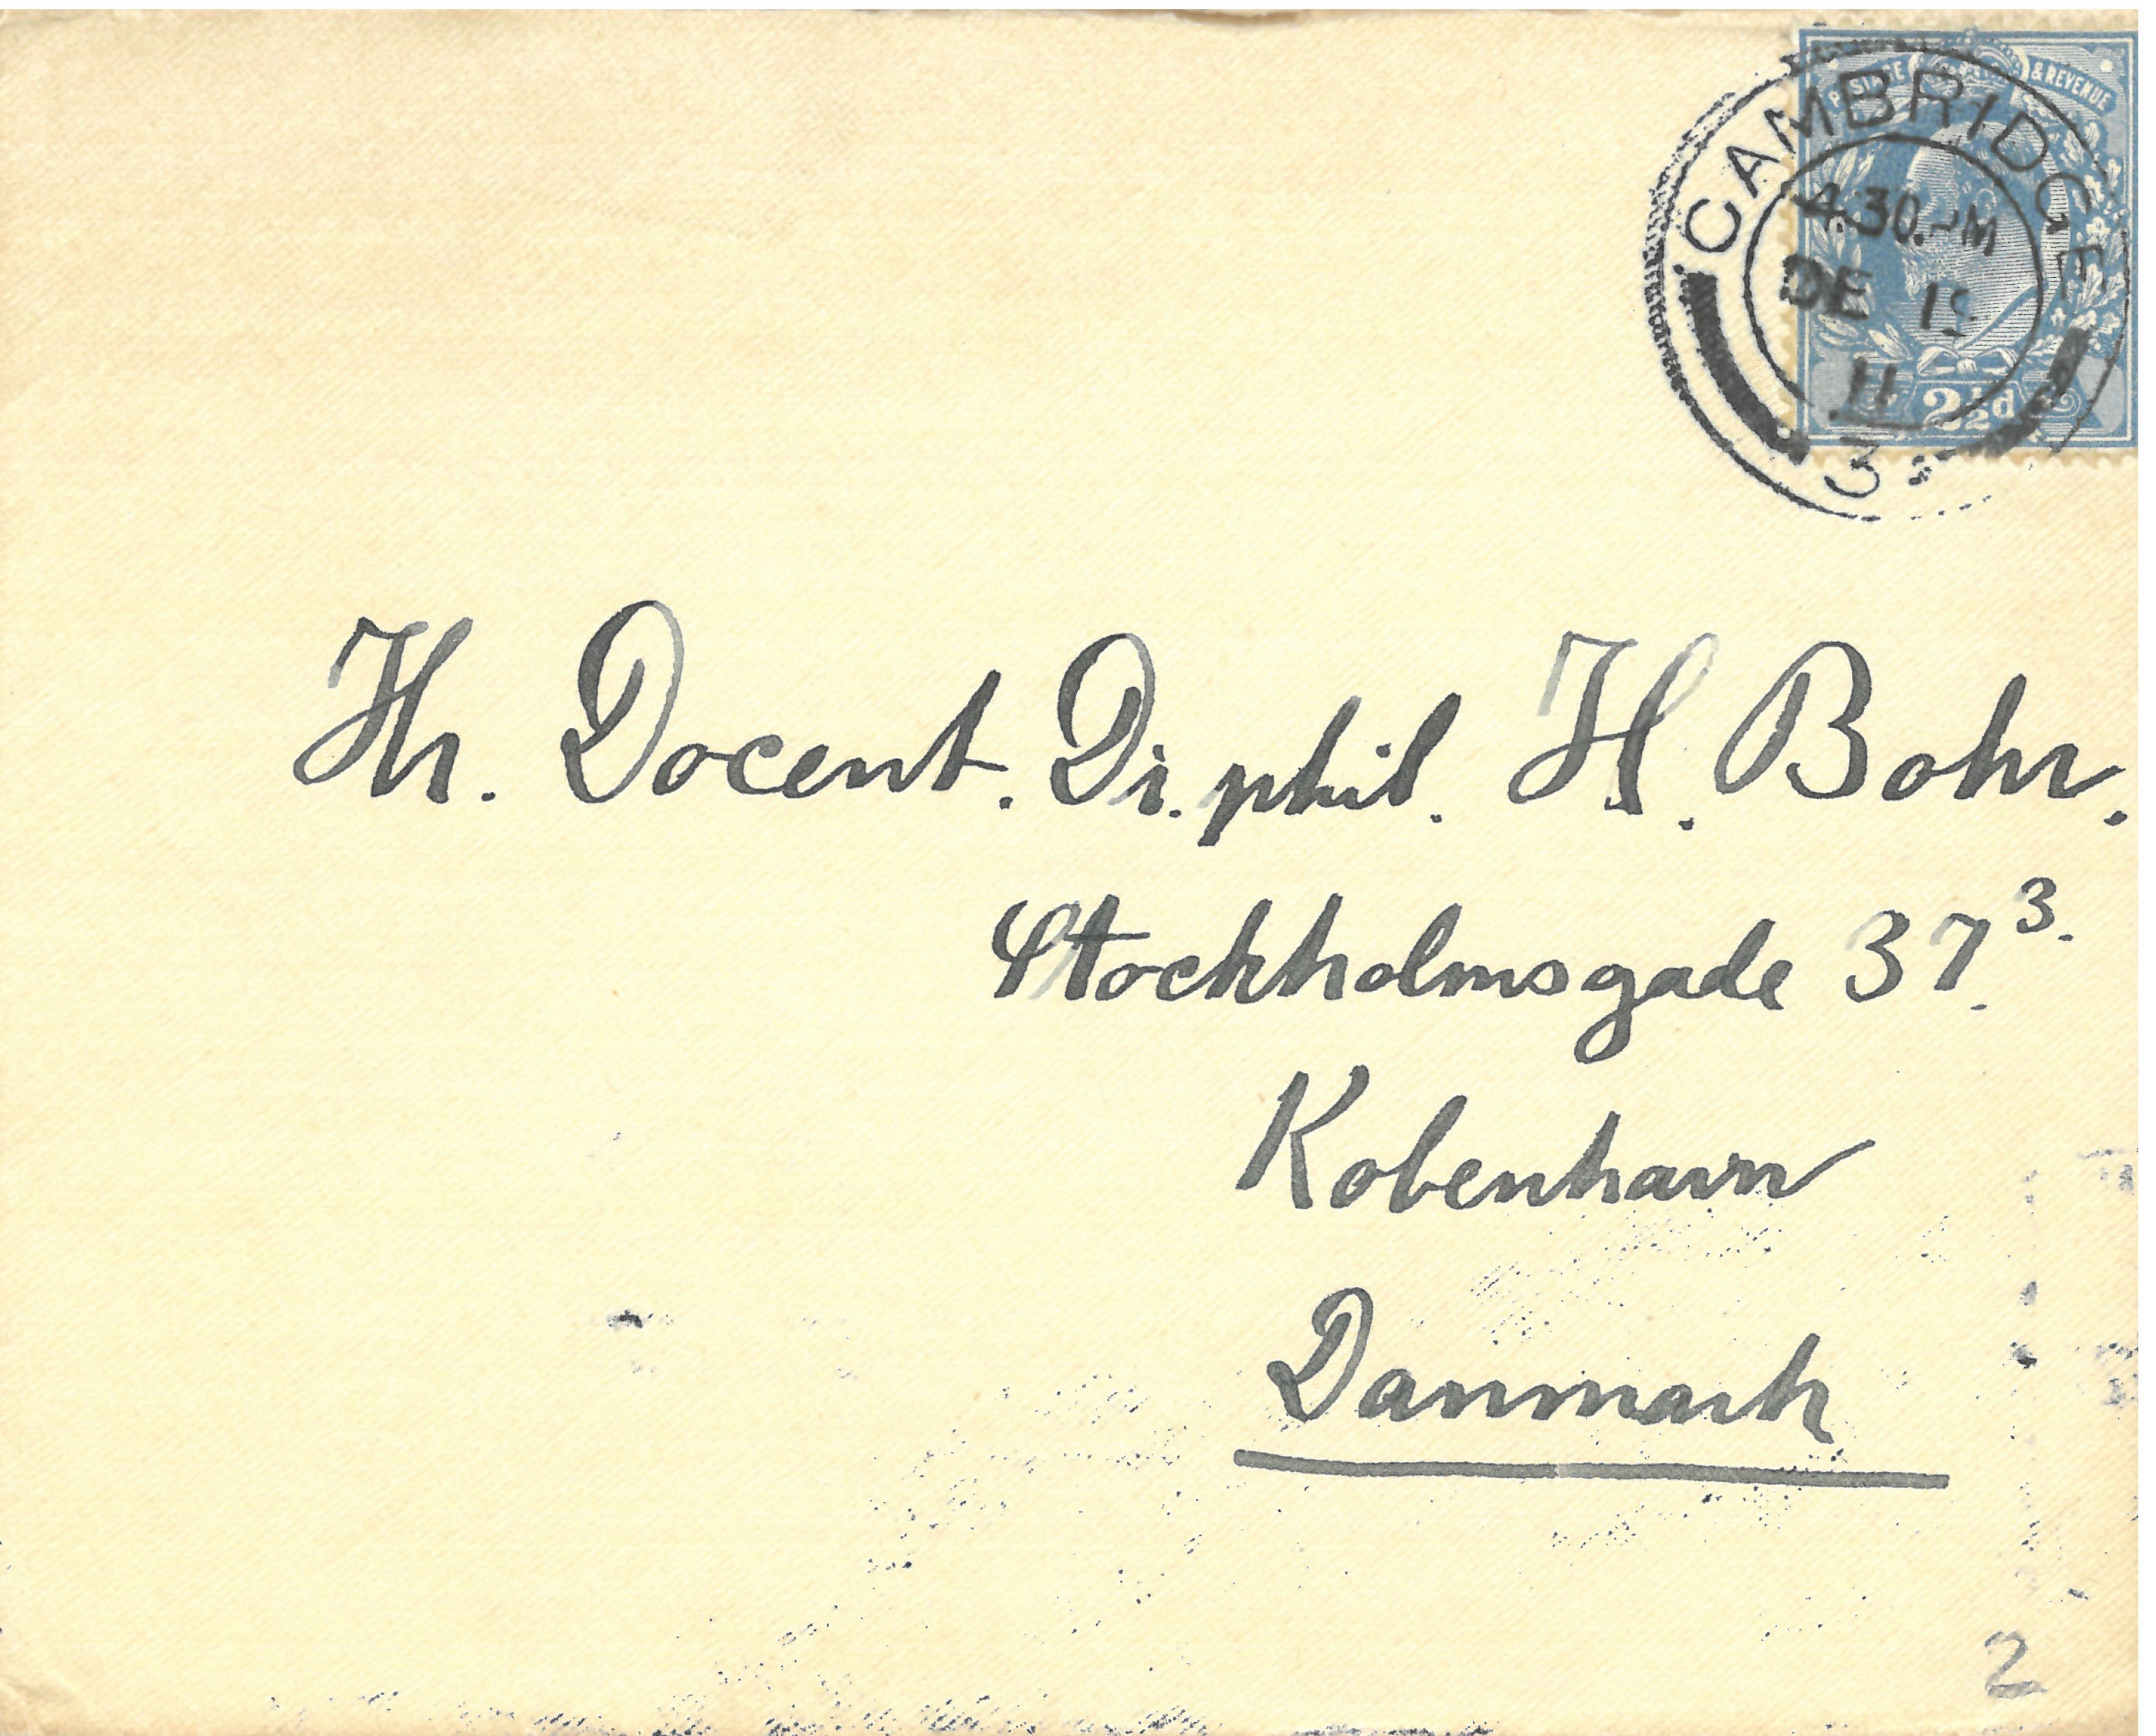 POSTAGE & REVENUE
CAMBRIDGE
4.30.PM
DE 1
11
3
2½d
Hr. Docent. Dr. phil. H. Bohr.
Stockholmsgade 37.³·
Kobenhavn
Danmark
2